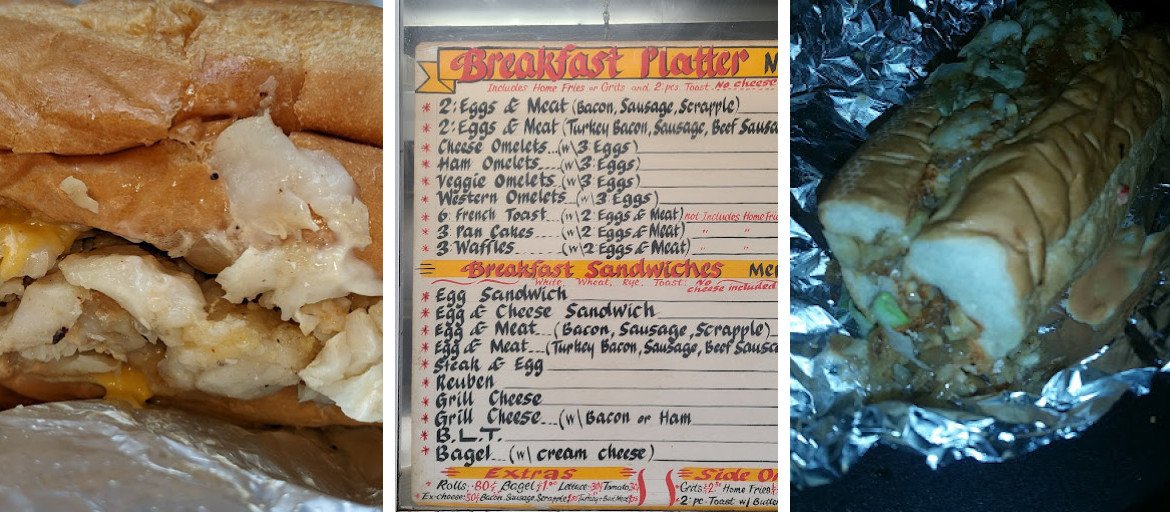 Breakfast Platter
Includes Home Fries or Grits and 2 pcs. Toast. No cheese
* 2: Eggs & Meat (Bacon, Sausage, Scrapple)
* 2: Eggs & Meat (Turkey Bacon, Sausage, Beef
* Cheese Omelets (w\3 Eggs)
* Ham Omelets (w\3 Eggs)
* Veggie Omelets (w\3 Eggs)
* Western Omelets (w\3 Eggs)
* 6: French Toast (w\2 Eggs & Meat) not Includes Home
* 3: Pan Cakes (w\2 Eggs & Meat) " "
* 3: Waffles (w\2 Eggs & Meat) " "
Breakfast Sandwiches
White, Wheat, Rye, Toast. No cheese included
* Egg Sandwich
* Egg & Cheese Sandwich
* Egg & Meat (Bacon, Sausage, Scrapple)
* Egg & Meat (Turkey Bacon, Sausage, Beef
* Steak & Egg
* Reuben
* Grill Cheese
* Grill Cheese (w\ Bacon or Ham
* B.L.T.
* Bagel (w\ cream cheese)
Extras
Rolls .80¢ Bagel Lettuce Tomato
Ex-cheese Bacon, Sausage, Scrapple
Side
Grits Home Fries
2: pc. Toast w/